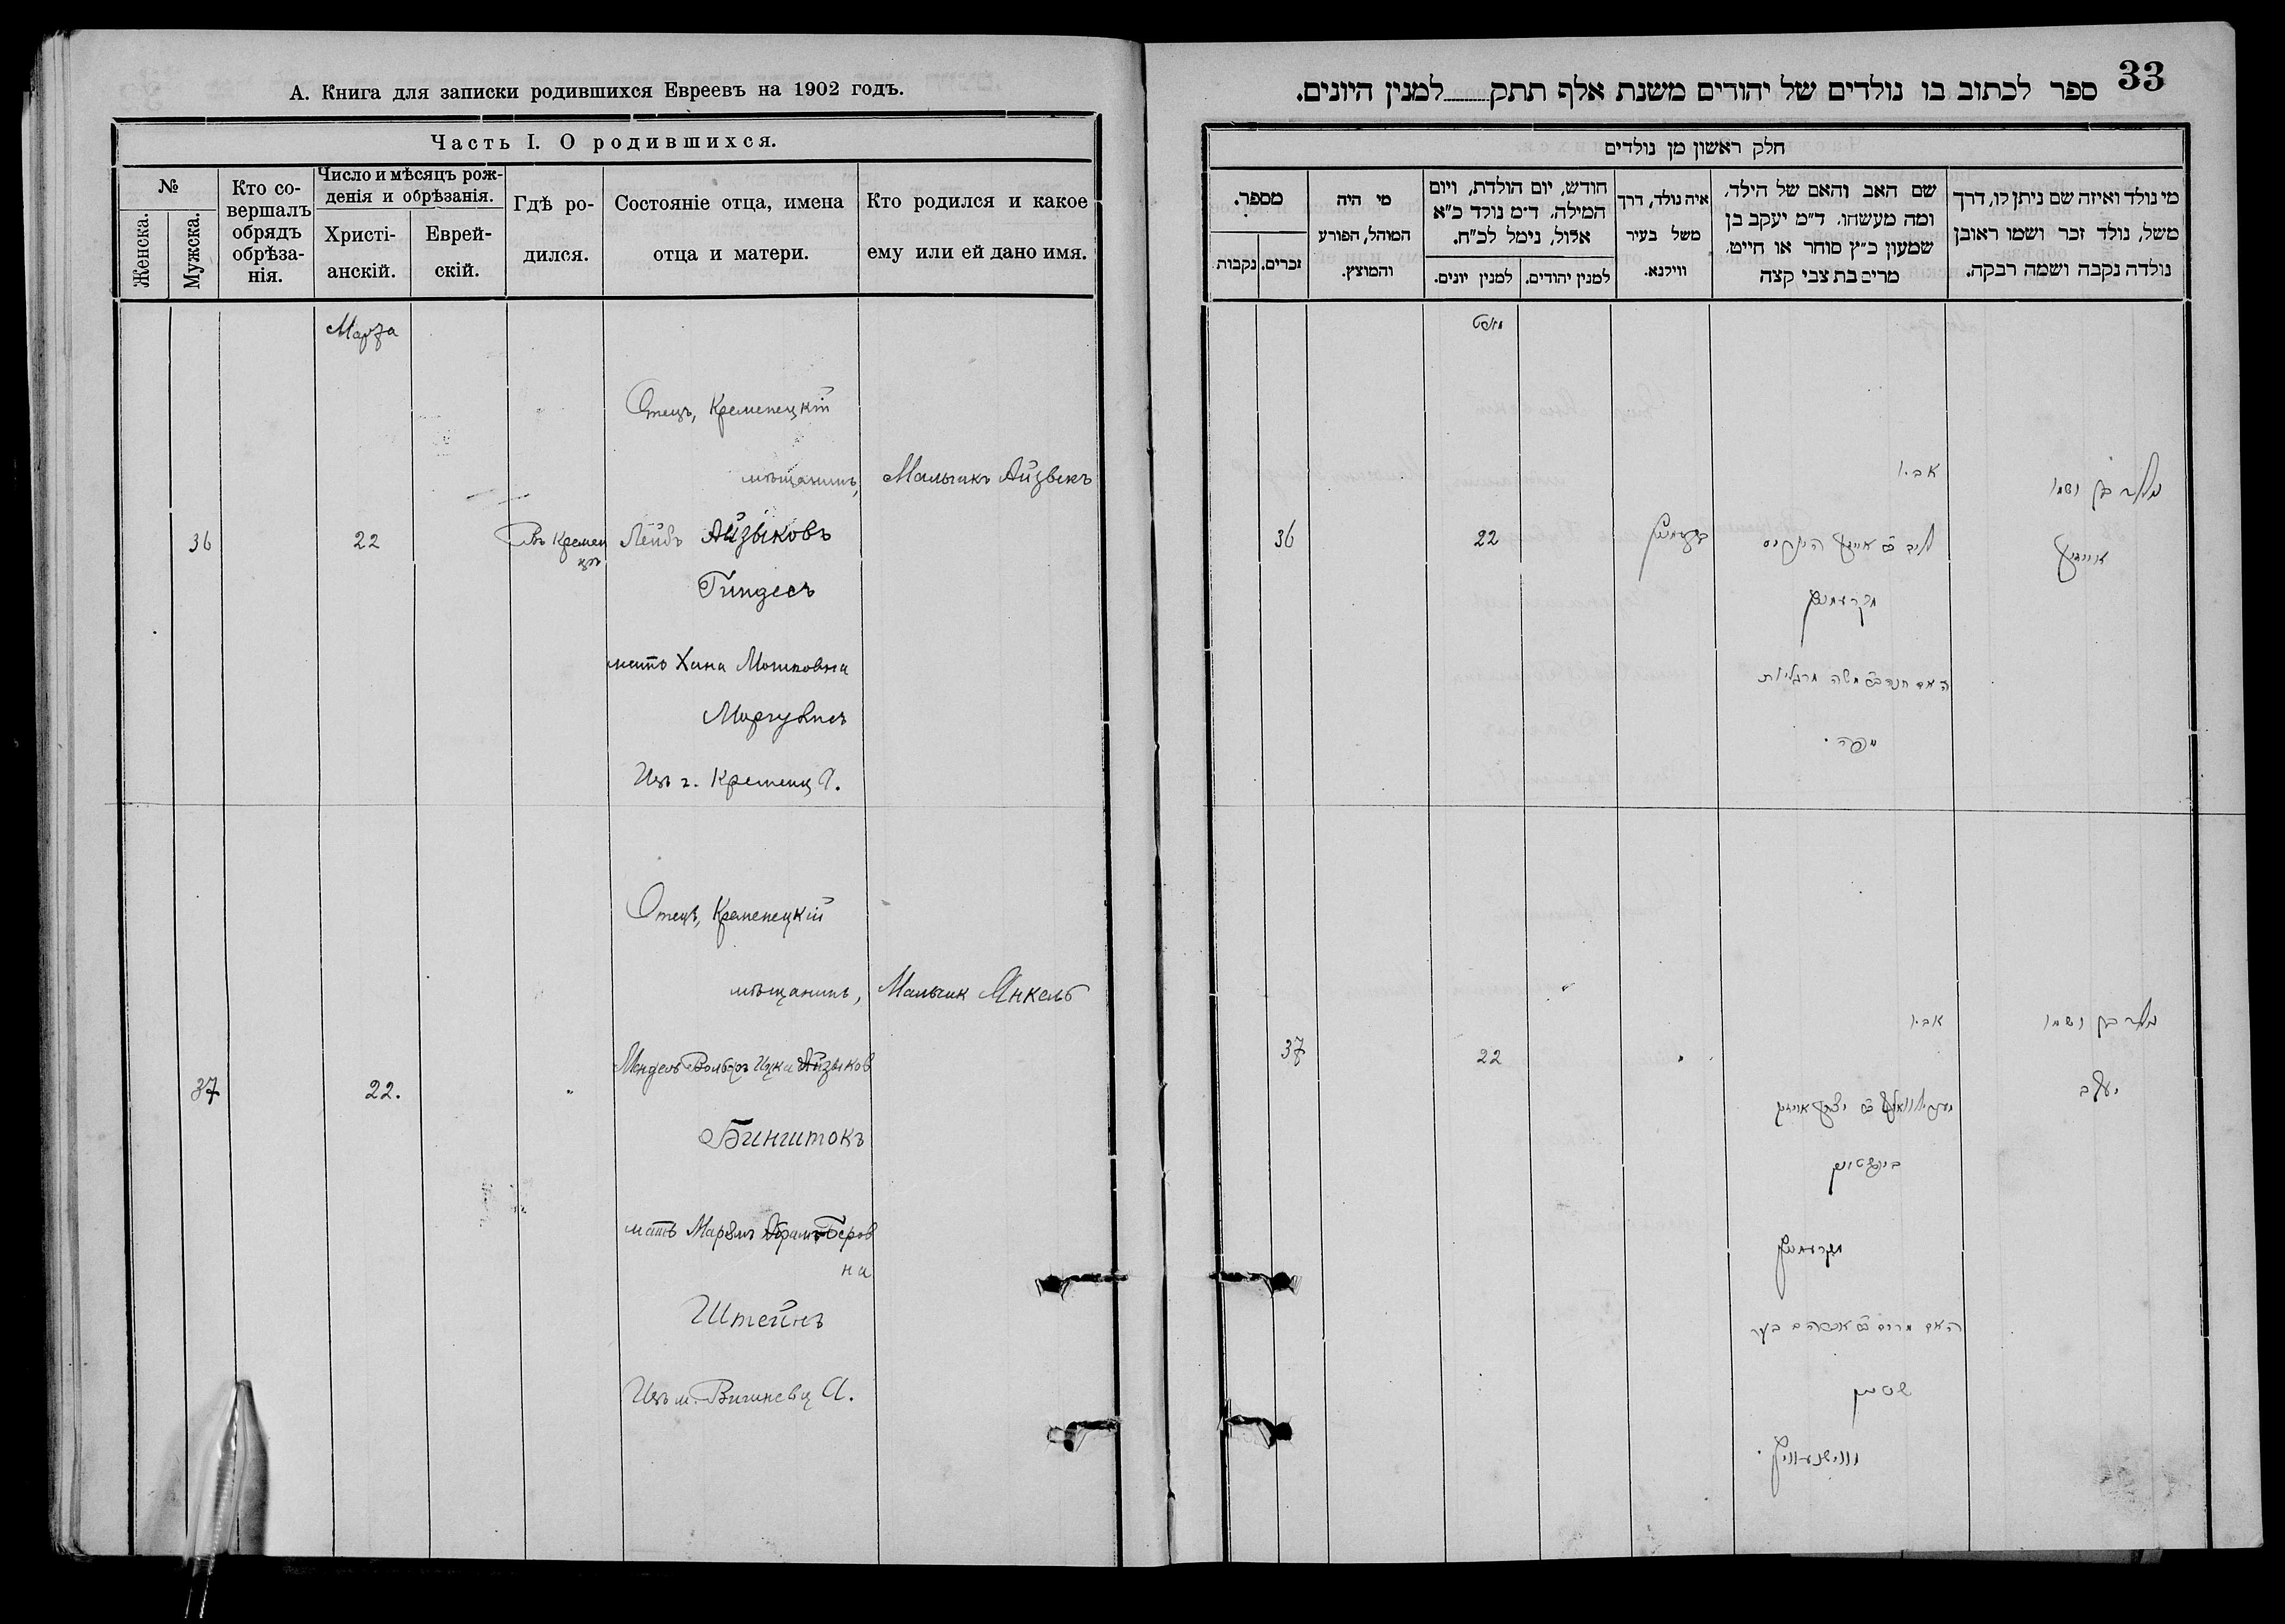 А. Книга для записки родившихся Евреевъ на 1902 годъ.
Часть I. О родившихся.
№
Женска.
Мужска.
Кто со-
вершалъ
обрядъ
обрѣза-
нія.
Число и мѣсяцъ рож-
денія и обрѣзанія.
Христі-
анскій.
Еврей-
скій.
Гдѣ ро-
дился.
Состояніе отца, имена
отца и матери.
Кто родился и какое
ему или ей дано имя.
Марта
36
22
Въ Кремен
цѣ
Отецъ, Кременецкій
мѣщанинъ,
Лейбъ Айзыковъ
Гиндесъ
мать Хана Мошковна
Маргулисъ
Изъ г. Кременц А.
Мальчикъ Айзыкъ
37
22.
"
Отецъ, Кременецкій
мѣщанинъ,
Мендель Вольфъ Ицка Айзыков
Бинштокъ
мать Марьямъ Абрамъ Беров
на
Штейнъ
Изъ м. Вишневц А.
Мальчик Янкель
33
ספר לכתוב בו נולדים של יהודים משנת אלף תתק למנין היונים.
חלק ראשון מן נולדים
מספר.
זכרים.
נקבות
מי היה
המוהל, הפורע
והמוצץ.
חודש, יום הולדת, ויום
המילה. ד"מ נולד כ"א
אלול, נימל לכ"ח.
למנין יונים.
למנין יהודים.
איה נולד, דרך
משל בעיר
ווילנא.
שם האב והאם של הילד,
ומה מעשהו. ד"מ יעקב בן
שמעון כ"ץ סוחר או חייט,
מרים בת צבי קצה
מי נולד ואיזה שם ניתן לו, דרך
משל, נולד זכר ושמו ראובן
נולדה נקבה ושמה רבקה.
מארט
36
22
אביו
ליב ב"ר אייזיק הינדיס
מקרעמניץ
האם חנה ב"ר משה מרגליות
מפה.
נולד בן ושמו
אייזיק
37
22
"
אביו
בינשטאק
מקרעמניץ
האם מרים ב"ר אברהם בער
שטיין
ווישניוויץ.
נולד בן ושמו
יעקב